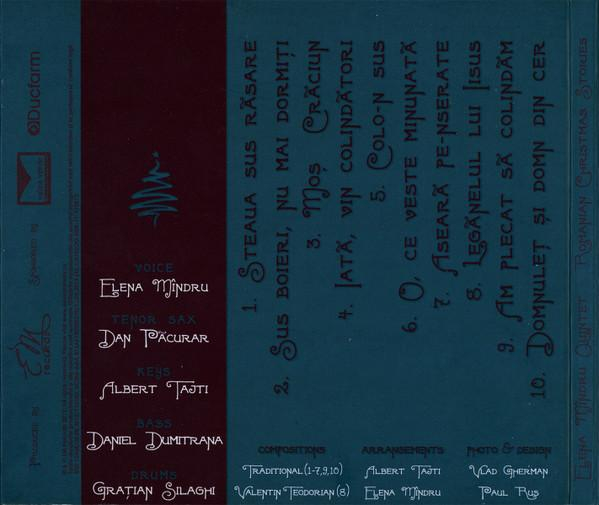 Ducfarm
Sponsored by
EM
records
Produced by
VOICE
Elena Mîndru
TENOR SAX
Dan Păcurar
KEYS
Albert Tajti
BASS
Daniel Dumitrana
DRUMS
Grațian Silaghi
1. Steaua sus răsare
2. Sus boieri, nu mai dormiți
3. Moș Crăciun
4. Iată, vin colindători
5. Colo-n sus
6. O, ce veste minunată
7. Aseară pe-nserate
8. Legănelul lui Iisus
9. Am plecat să colindăm
10. Domnuleț și domn din cer
COMPOSITIONS
Traditional (1-7,9,10)
Valentin Teodorian (8)
ARRANGEMENTS
Albert Tajti
Elena Mîndru
PHOTO & DESIGN
Vlad Gherman
Paul Rus
Elena Mîndru Quintet Romanian Christmas Stories